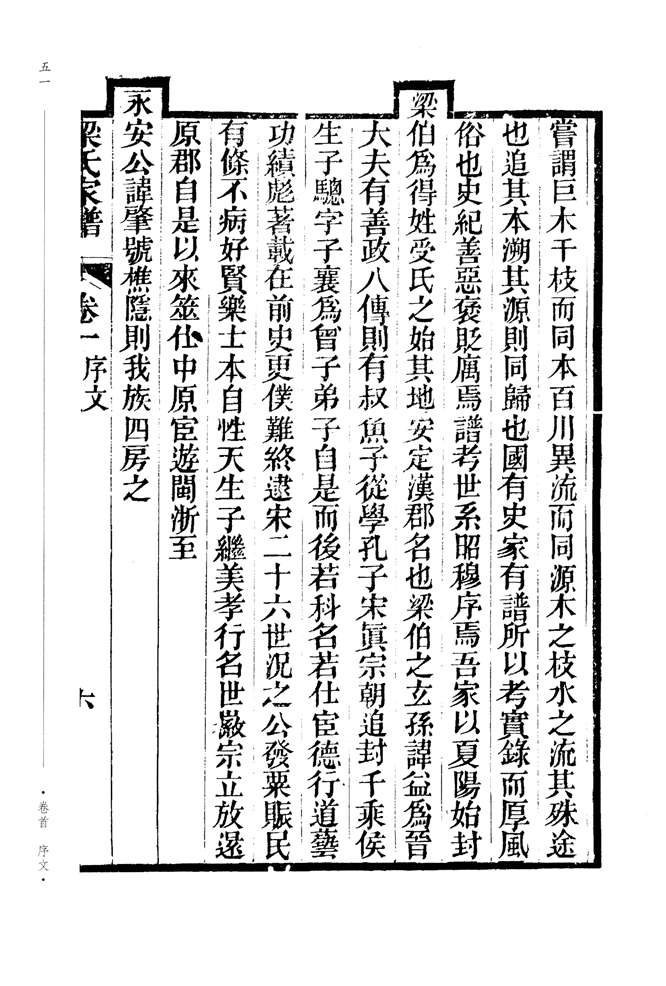 嘗謂巨木千枝而同本百川異流而同源木之枝水之流其殊途
也追其本溯其源則同歸也國有史家有譜所以考實錄而厚風
俗也史紀善惡褒貶厲焉譜考世系昭穆序焉吾家以夏陽始封
梁伯爲得姓受氏之始其地安定漢郡名也梁伯之玄孫諱益爲晉
大夫有善政八傳則有叔魚子從學孔子宋眞宗朝追封千乘侯
生子驄字子襄爲曾子弟子自是而後若科名若仕宦德行道藝
功績彪著載在前史更僕難終逮宋二十六世況之公發粟賑民
有條不病好賢樂士本自性天生子繼美孝行名世嚴宗立放還
原郡自是以來筮仕中原宦遊閩浙至
永安公諱肇號樵隱則我族四房之
梁氏家譜 卷一 序文 六
五一
·卷首 序文·